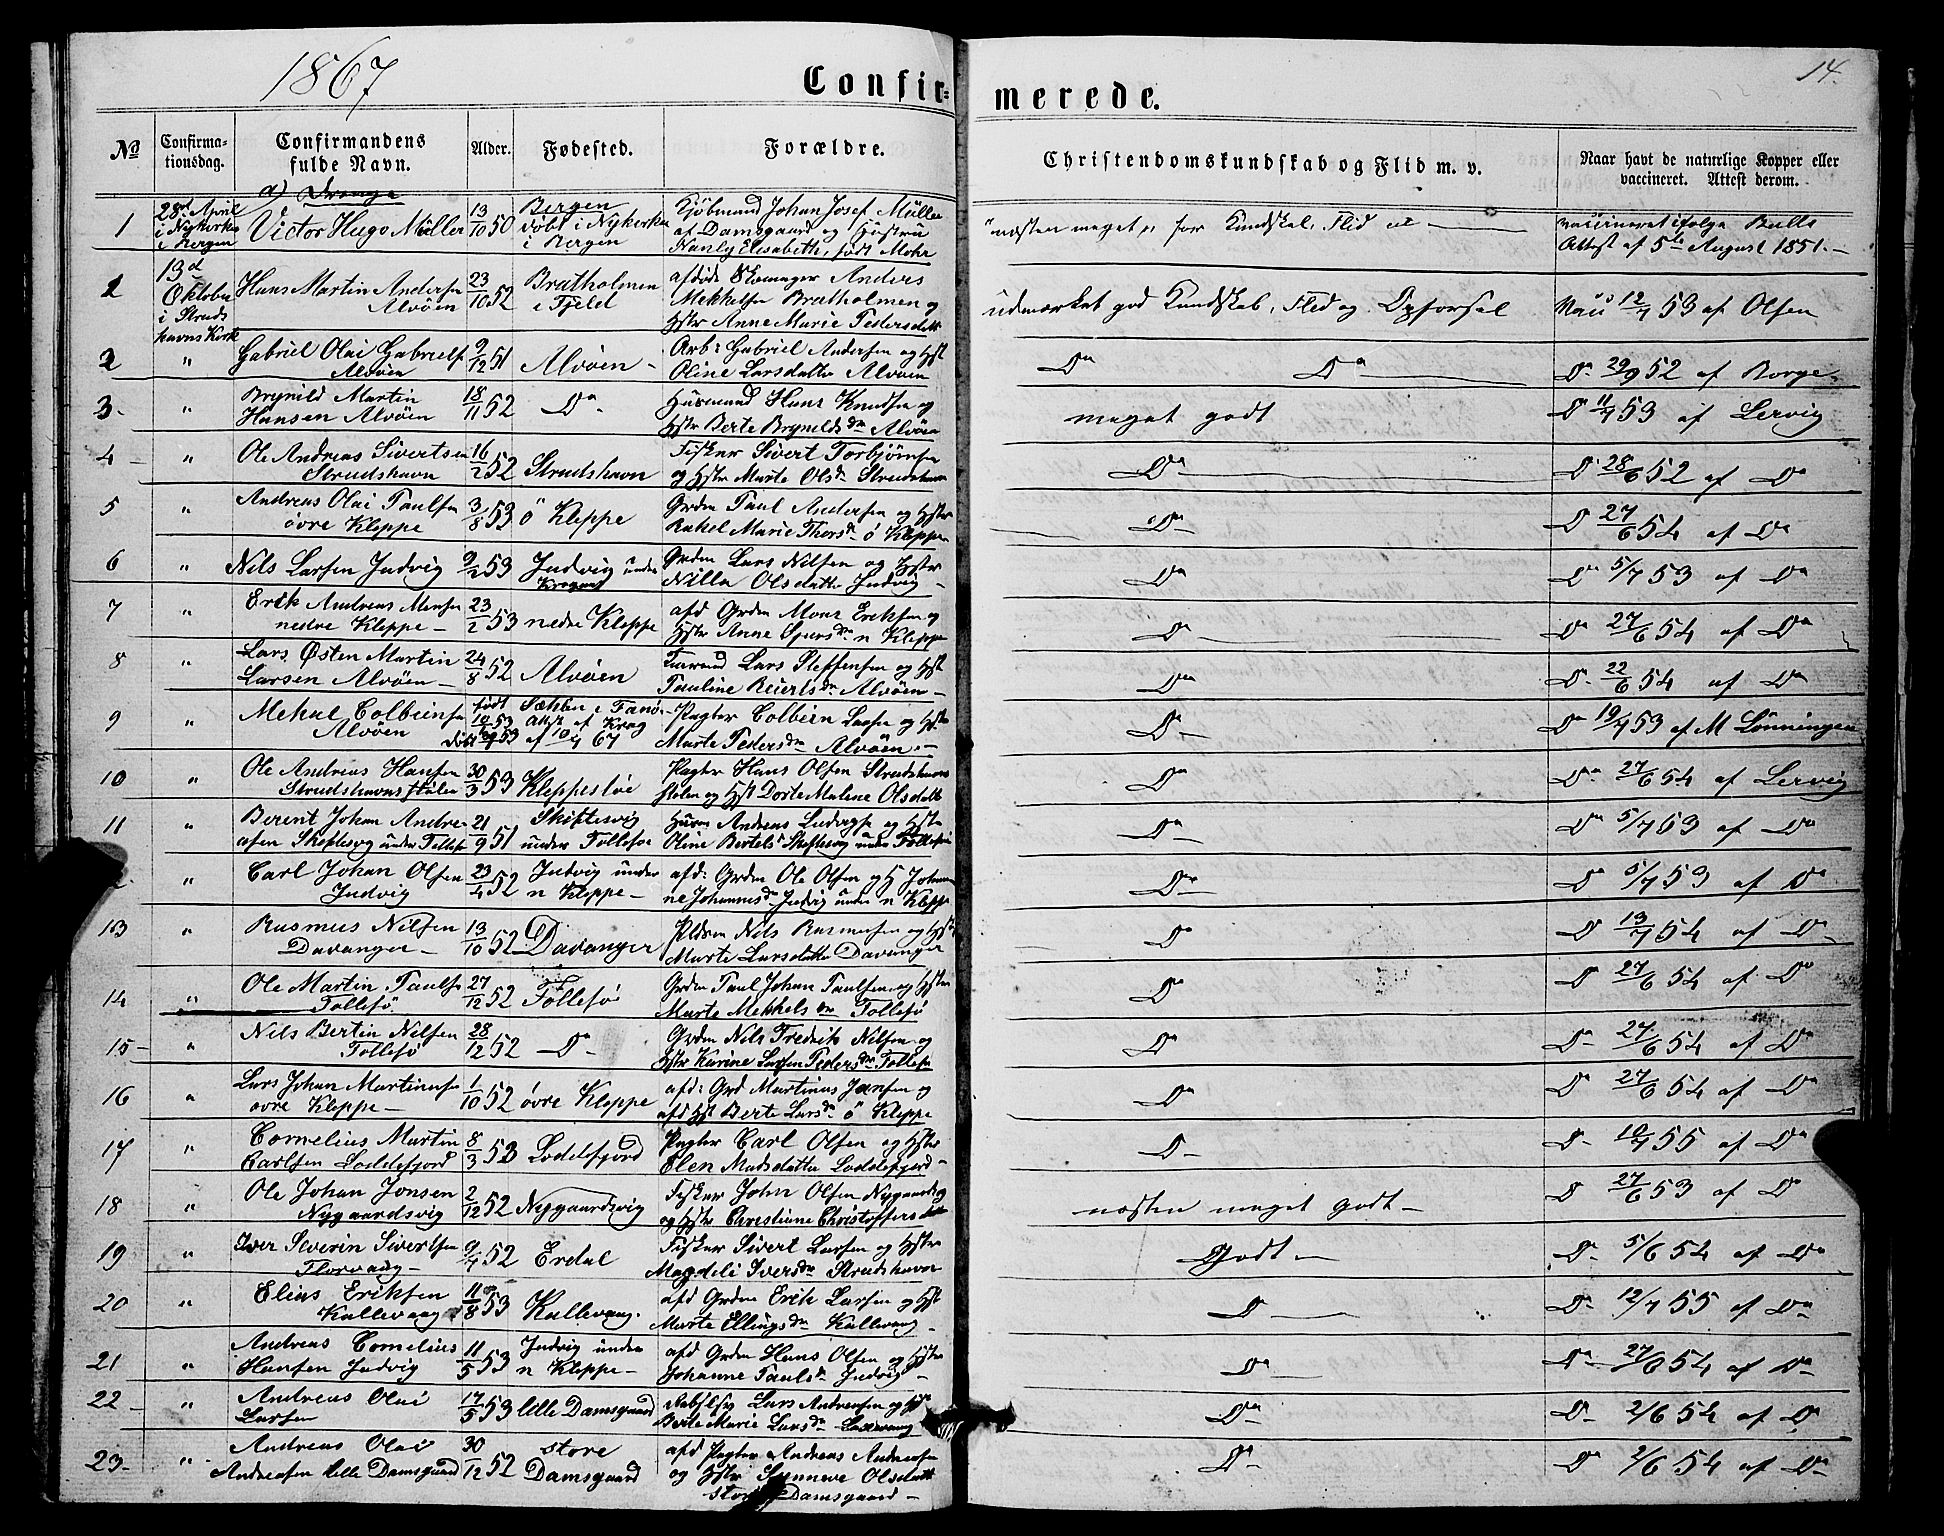 1867
Confirmerede.
14.
No
Confirmationsdag.
Confirmandens fulde Navn.
Alder.
Fødested.
Forældre.
Christendomskundskab og Flid m. v.
Naar havt de naturlige Kopper eller vaccineret. Attest derom.
a) Drenge
1 28de April i Nykirken i Bergen Victor Hugo Müller 13/10 50 Bergen døbt i Nykirken i Bergen Kjøbmand Johan Josef Müller af Damsgaard og Hustru Nanly Elisabeth, født Mohr "næsten meget" for Kundskab, Flid vaccineret ifølge Bulls Attest af 5te August 1851.
2 13d Oktober i Strudshavns Kirke Hans Martin Andersen Alvøen 23/10 52 Bratholmen i Fjeld afdøde Anders Mekkelsen Bratholmen og Hstr Anne Marie Pedersdatt udmærket god Kundskab, Flid og Opførsel 12/7 53 af Olsen
2 " Gabriel Olai Gabrielsn Alvøen 9/12 51 Alvøen Arb: Gabriel Andersen og Hst Oline Larsdatter Alvøen Do Do Do 29/9 52 af Borge
3 " Brynild Martin Hansen Alvøen 18/11 52 Do Huusmand Hans Knudsen og Hstr Berte Brynildsdr Alvøen meget godt Do 11/7 53 af Lervig
4 " Ole Andreas Sivertsen Strudshavn 16/2 52 Strudshavn Fisker Sivert Torbjørnsen og Hstr Marte Olsdr Strudshavn Do Do 28/6 52 af Do
5 " Andreas Olai Paulsen øvre Kleppe 3/8 53 ö Kleppe Grdm Paul Andersen og Hstr Rakel Marie Thorsdr ö Kleppe Do Do 27/6 54 af Do
6 " Nils Larsen Indvig 9/2 53 Indvig under Grdm Lars Nilsen og Hstr Nilla Olsdatter Indvig Do Do 5/7 53 af Do
7 " Erik Andreas Monsen nedre Kleppe 23/2 53 nedre Kleppe afd Grdm Mons Eriksen og Hstr Anne n Kleppe Do Do 27/6 54 af Do
8 " Lars Østen Martin Larsen Alvöen 24/8 52 Alvöen Lars Steffensen og Hst Pauline Reiertsdr Alvöen Do Do 22/6 54 af Do
9 " Mekal Colbeinsen Alvöen født 10/ 53 i Fanö Attst af Krog af 10/4 67 Pagter Colbein Larsen og Hstr Marte Pedersdr Alvöen Do Do 19/7 53 af M Lönningen
10 " Ole Andreas Hansen Strudshavnsstölen 30/3 53 Kleppestöe Pagter Hans Olsen Strudshavnstolen og Hst Dorte Malene Olsdatt Do Do 27/6 54 af Lervig
11 " Berent Johan Andreasen Skiftesvig under Follesø 21/9 51 Skiftesvig under Follesø Huusm Andreas Ludvigsn og Hstr Oline Bertelsd Skiftesvig under Follesø Do Do 5/7 53 af Do
" Carl Johan Olsen Indvig 23/4 52 Indvig under n Kleppe afd: Grdm Ole Olsen og H Johanne Johannesdr Indvig under n Kleppe Do Do 5/7 53 af Do
13 " Rasmus Nilsen Davanger 13/10 52 Davanger Nils Rasmusen og Hst Marte Larsdatter Davanger Do Do 13/7 54 af Do
14 " Ole Martin Paulsn Follesö 27/12 52 Follesö Grdm Paul Johan Paulsen og Hstr Marte Mekkelsdr Follesö Do Do 27/6 54 af Do
15 " Nils Bertin Nilsen Follesö 28/12 52 Do Grdm Nils Fredrik Nilsen og Hstr Karine Larsen Pedersdr Follesø Do Do 27/6 54 af Do
16 " Lars Johan Martinusen øvre Kleppe 1/10 52 øvre Kleppe afd: Grd Martinus Jansen og afd Hst Berte Larsdr ö Kleppe Do Do 27/6 54 af Do
17 " Cornelius Martin Carlsen Loddefjord 8/3 53 Lodefjord Pagter Carl Olsen og Hstr Elen Madsdatter Loddefjord Do Do 10/7 55 af Do
18 " Ole Johan Jonsen Nygaardsvig 2/12 52 Nygaardsvig Fisker John Olsen Nygaardsvig og Hstr Christiane Christoffersdatter næsten meget godt Do 27/6 53 af Do
19 " Iver Severin Sivertsen Florvaag 9/7 52 Erdal Fisker Sivert Larsen og Hstr Magdeli Iversdr Strudshavn Godt Do 5/6 54 af Do
20 " Elias Eriksen Kallevaag 11/8 53 Kallevaag afd Grdm Erik Larsen og Hst Marte Ellingsdr Kallevaag Do Do 12/7 55 af Do
21 " Andreas Cornelius Hansen Indvig 11/5 53 Indvig under n Kleppe afd Grdm Hans Olsen og Hstr Johanne Paulsdr Indvig Do Do 27/6 54 af Do
22 " Andreas Olai Larsen 17/5 53 lille Damsgaard Lars Andreasen og Hst Berte Marie Larsdr Do Do 2/6 54 af Do
23 " Andreas Olai Andreasen lille Damsgaard 30/12 52 store Damsgaard afd Pagter Andreas Andersen og Hstr Synneve Olsdatt store Damsgaard Do Do 2/6 54 af Do